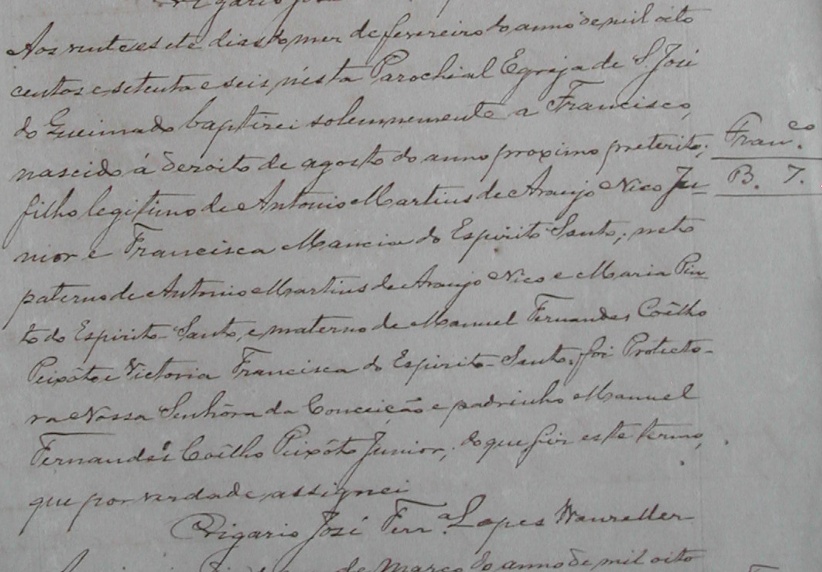 Vigario José
Aos vinte e sete dias do mez de fevereiro do anno de mil oito
centos e setenta e seis n'ésta Parochial Egreja de S. José
do Queimado baptizei solemnemente a Francisco,
nascido á dezoito de agosto do anno proximo preterito;
Fran.co
B. 7.
filho legitimo de Antonio Martins de Araujo Nico Ju-
nior e Francisca Mancia do Espirito Santo; neto
paterno de Antonio Martins de Araujo Nico e Maria Pin-
to do Espirito-Santo, e materno de Manuel Fernandes Coêlho
Peixôto e Victoria Francisca do Espirito-Santo; foi Protecto-
ra Nossa Senhôra da Conceição e padrinho Manuel
Fernandes Coêlho Peixôto Junior; do que fiz este termo,
que por verdade assignei
Vigario José Ferr.a Lopes
de Março do anno de mil oito